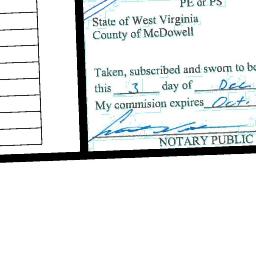 PE or PS
State of West Virginia
County of McDowell
Taken, subscribed and sworn to be
this 3 day of Dec
My commision expires Oct.
NOTARY PUBLIC